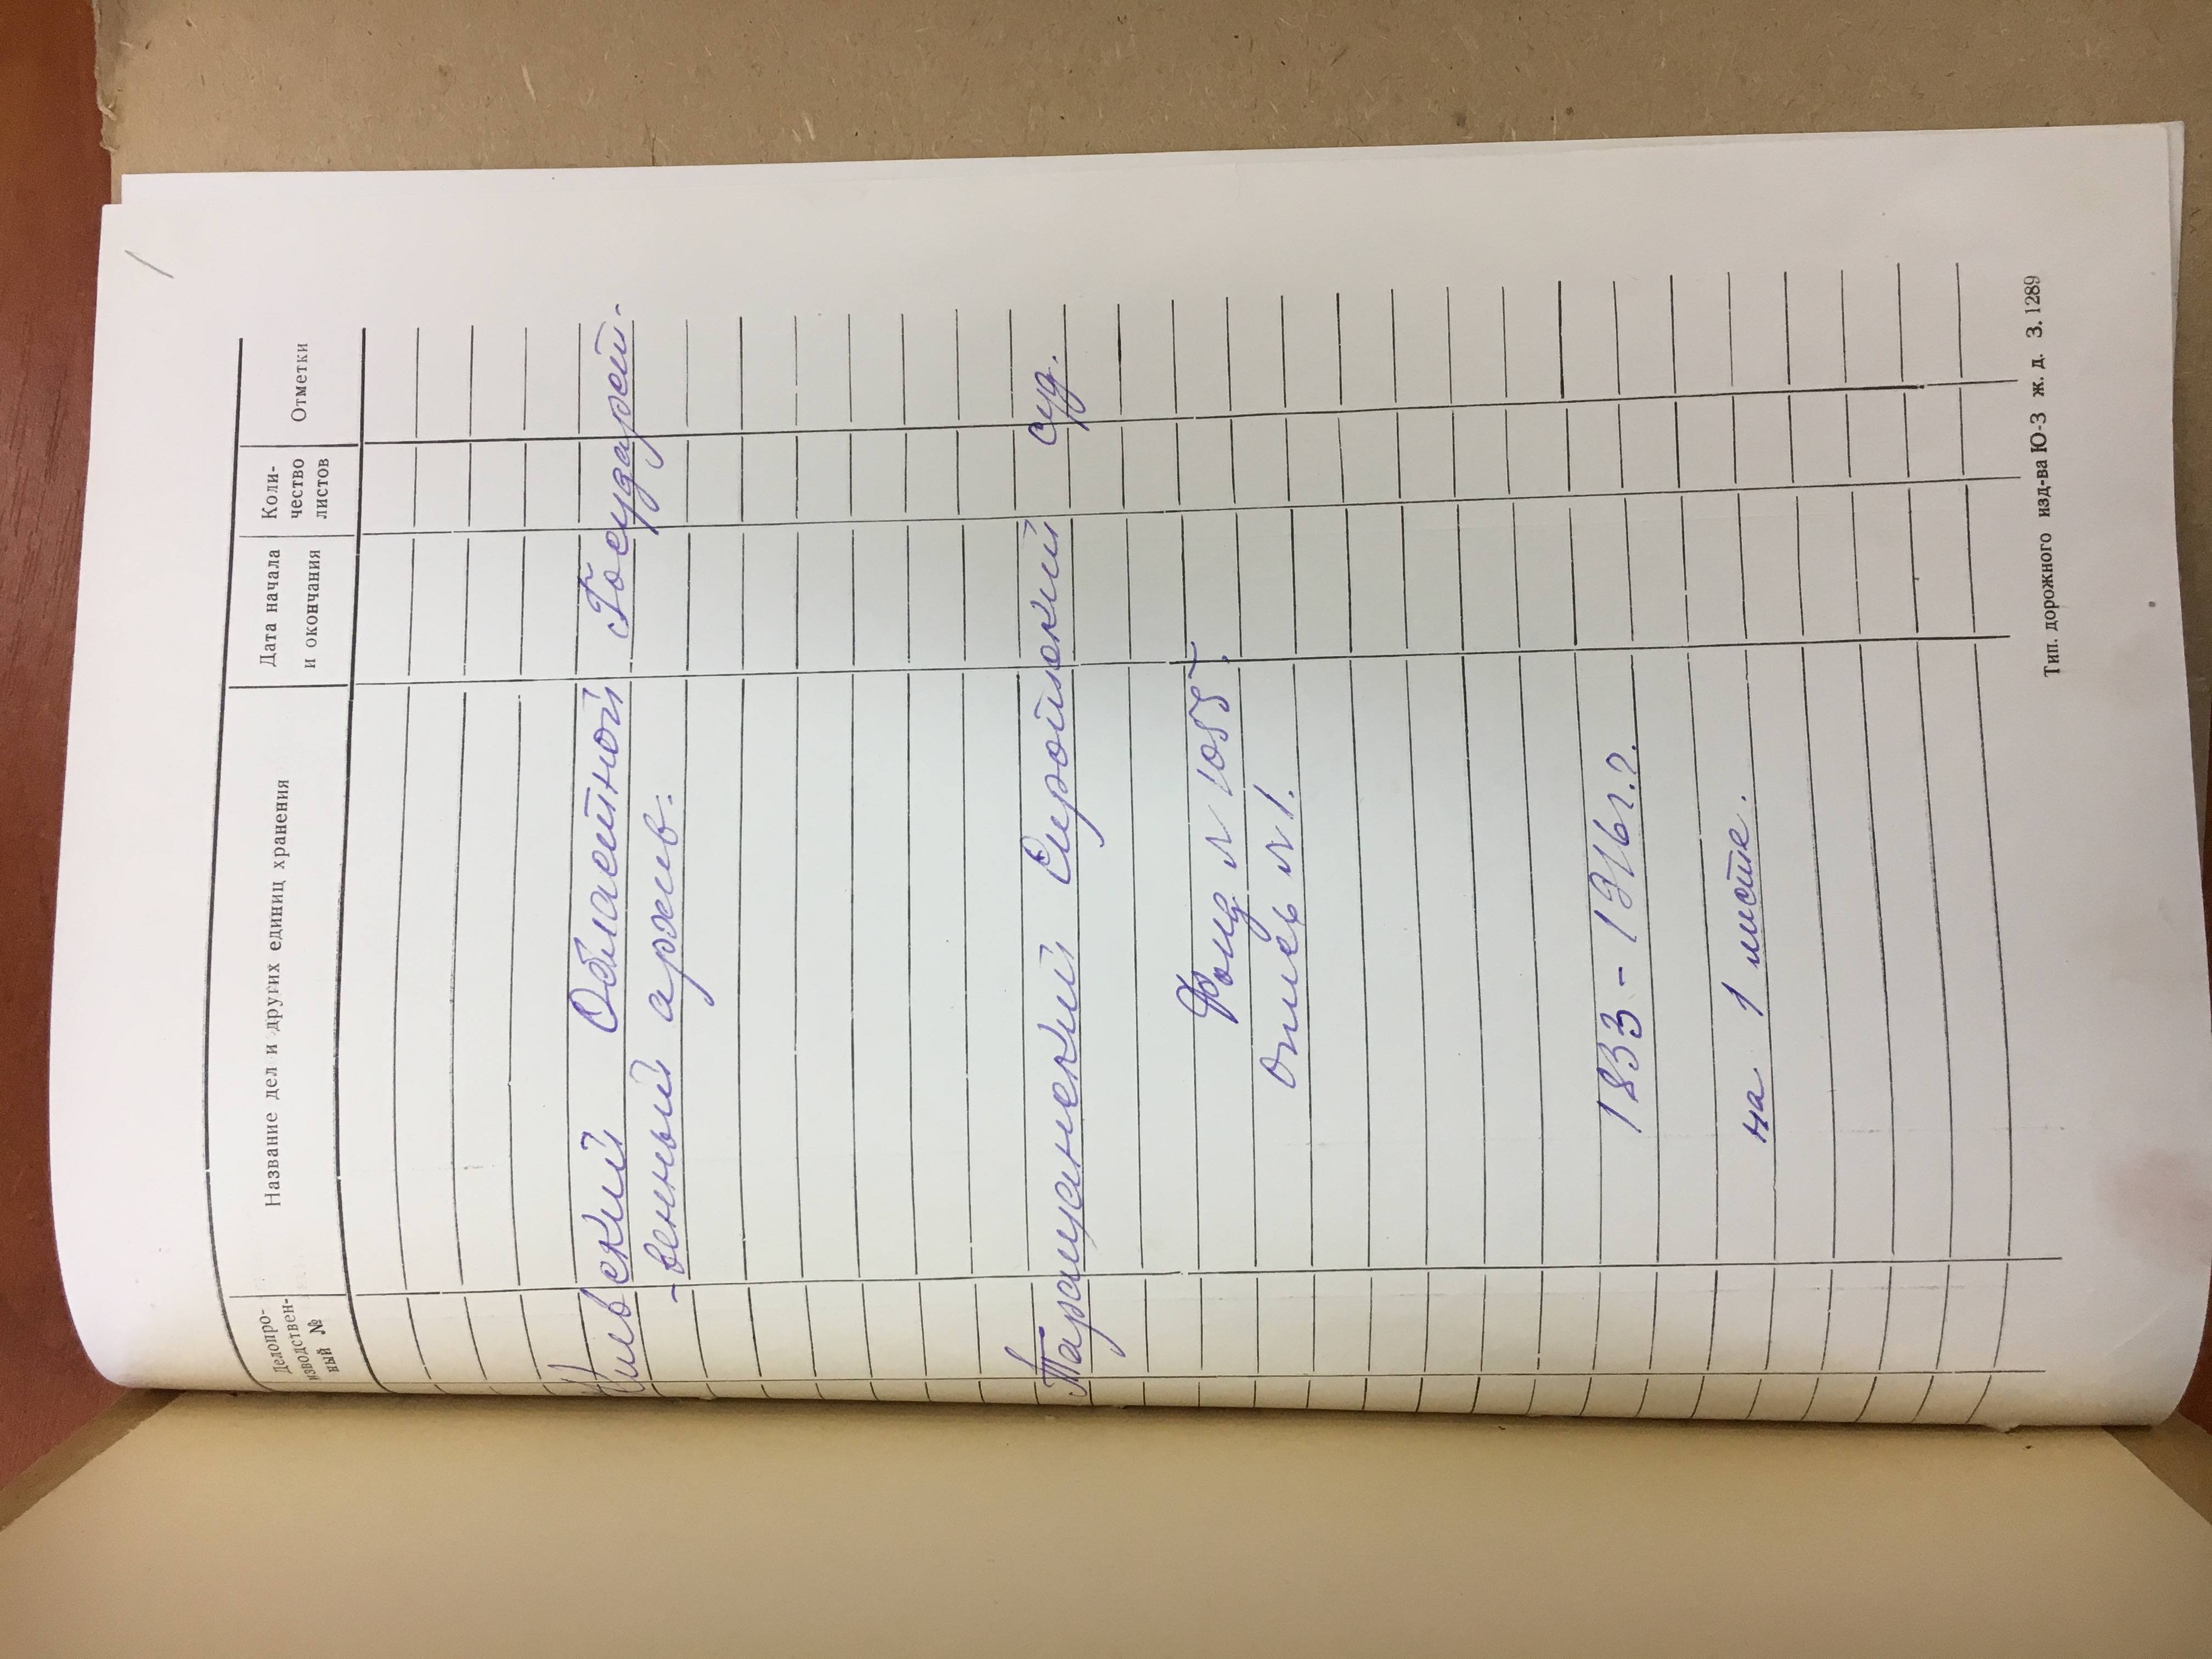 /
Делопро-
изводствен-
ный №
Название дел и других единиц хранения
Дата начала
и окончания
Коли-
чество
листов
Отметки
Киевский Областной Государст-
-венный архив.
Таращанский Сиротский суд.
Фонд № 1055
Опись № 1.
1833 - 1916 г.г.
на 1 листе.
Тип. дорожного изд-ва Ю-З ж. д. З. 1289